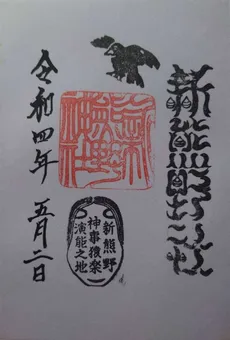 新熊野神社
新熊野神社
新熊野
神事猿楽
演能之地
令和四年 五月二日